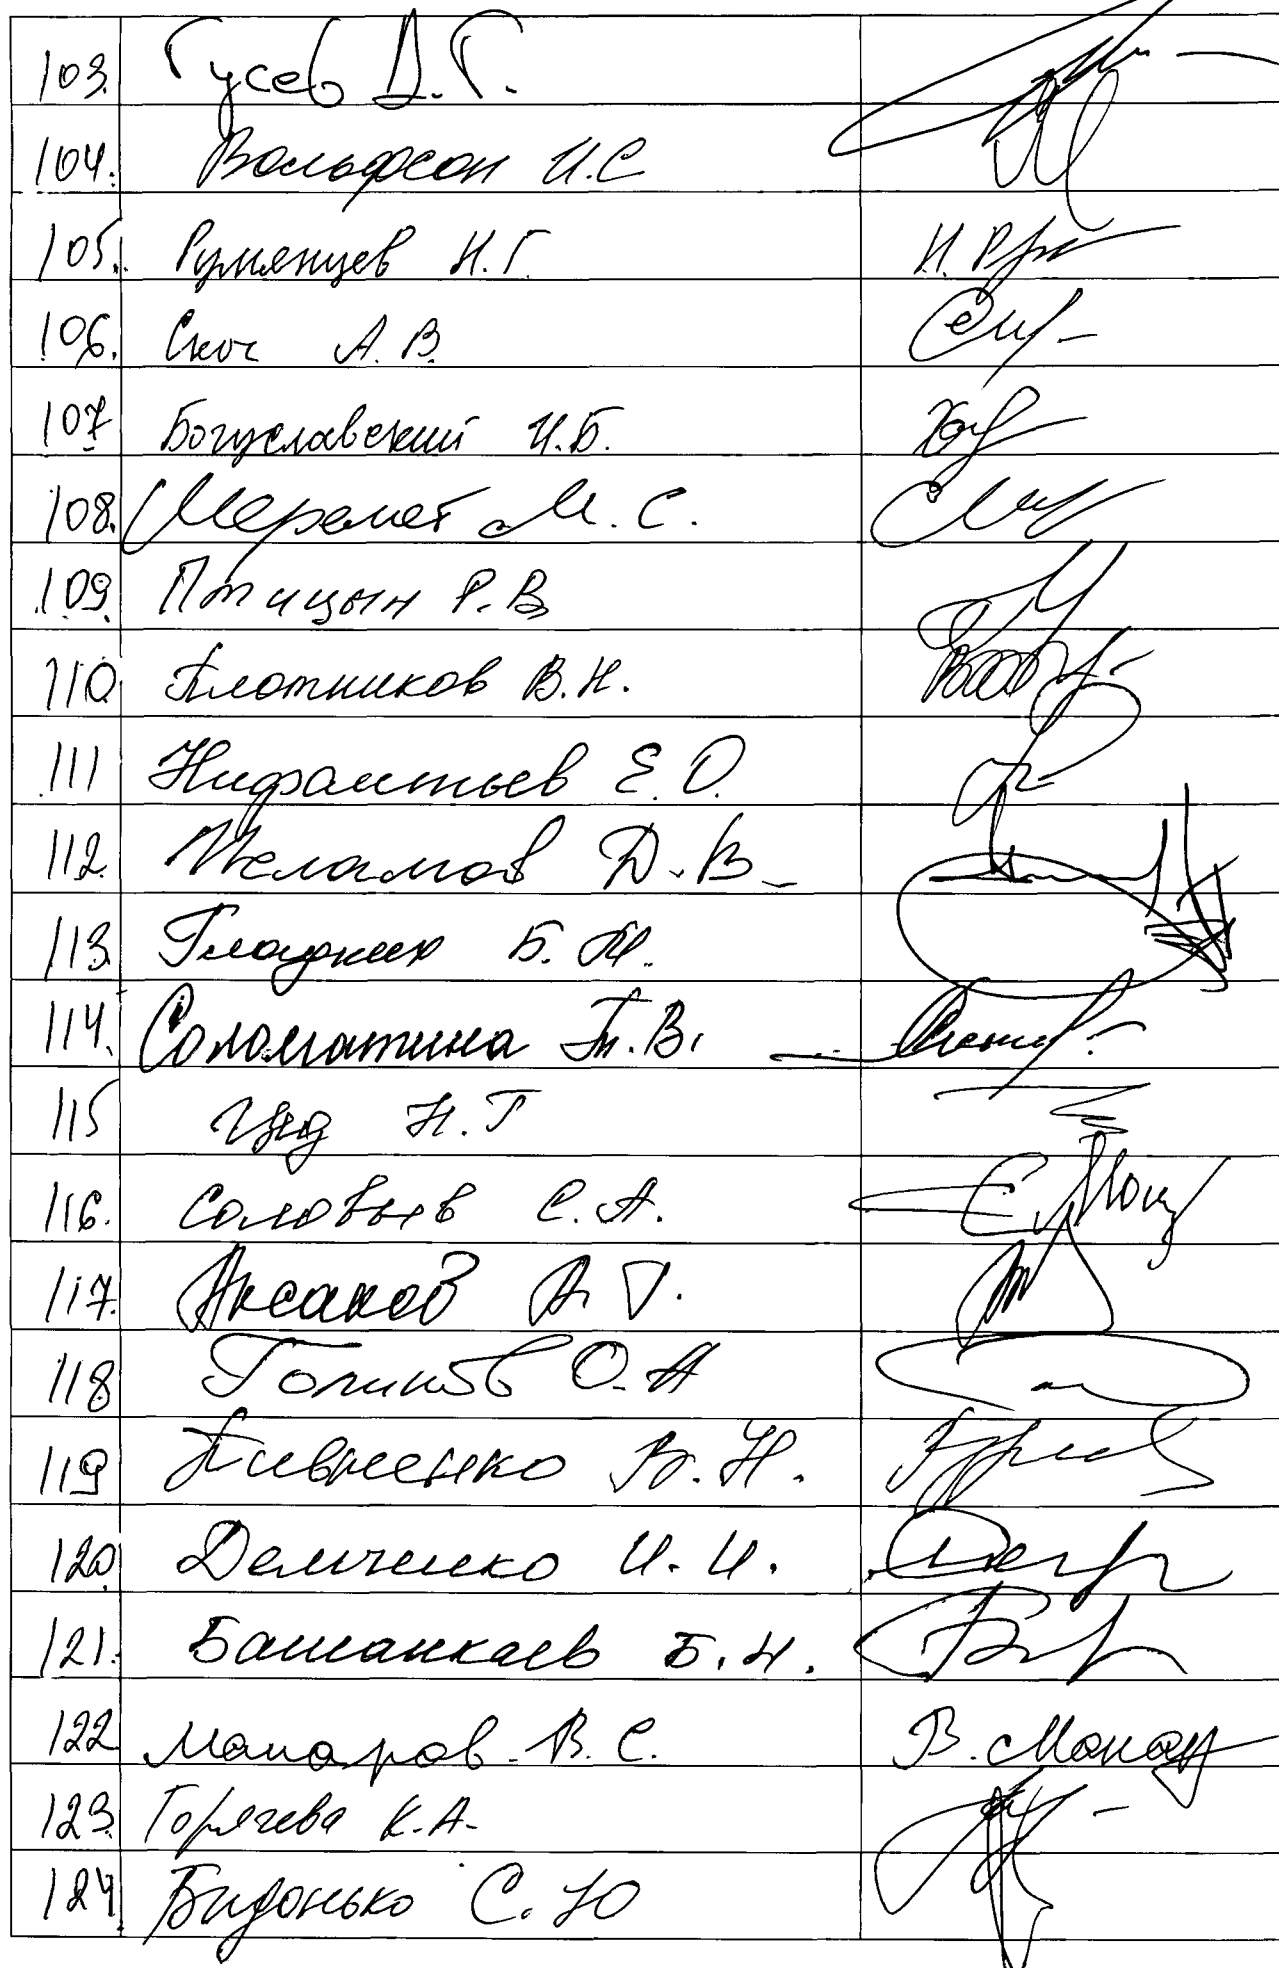 103. Гусев Д.Г.
104. Вольфсон И.С
105. Румянцев Н.Г. Н. Рум
106. Скоч А.В.
107 Богуславский И.Б.
108. Шеремет М.С.
109. Птицын Р.В
110. Плотников В.Н.
111 Нифантьев Е.О.
112. Пеламов Д.В.
113. Гладких Б.М.
114. Соломатина Т.В.
115 Цед Н.Г
116. Соловьев С.А.
117. Аксаков А Г.
118 Голиков О.А
119 Пивненко В.Н.
120. Демченко И.И.
121. Башанкаев Б.Н.
122 Макаров В.С. В. Макар
123. Горячева К.А.
124. Бидонько С.Ю